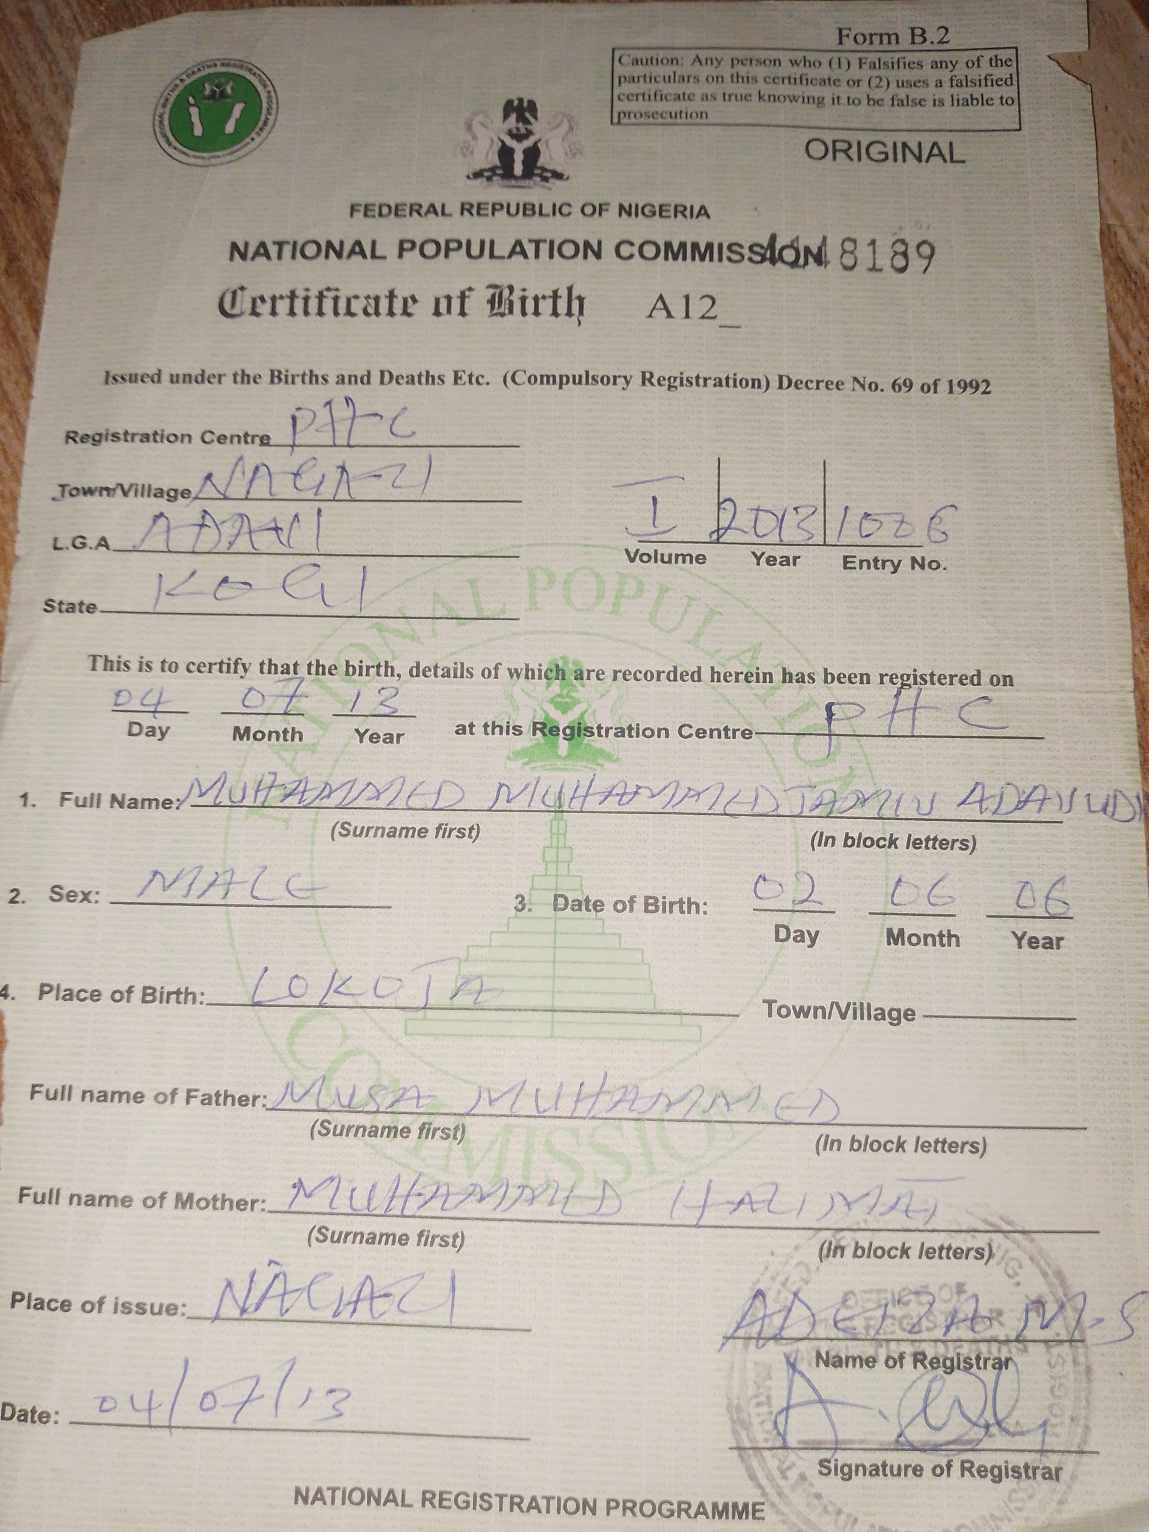 Form B.2
Caution: Any person who (1) Falsifies any of the
particulars on this certificate or (2) uses a falsified
certificate as true knowing it to be false is liable to
prosecution
ORIGINAL
FEDERAL REPUBLIC OF NIGERIA
NATIONAL POPULATION COMMISSION 8189
Certificate of Birth A12_
Issued under the Births and Deaths Etc. (Compulsory Registration) Decree No. 69 of 1992
Registration Centre PHC
Town/Village NAGAZI
L.G.A ADAVI
State KOGI
I 2013
Volume Year Entry No.
NATIONAL POPULATION COMMISSION
This is to certify that the birth, details of which are recorded herein has been registered on
04 07 13 at this Registration Centre PHC
Day Month Year
1. Full Name: MUHAMMED MUHAMMEDJAMIU
(Surname first) (In block letters)
2. Sex: MALE 3. Date of Birth: 02 06 06
Day Month Year
4. Place of Birth: LOKOJA Town/Village
Full name of Father: MUSA MUHAMMED
(Surname first) (In block letters)
Full name of Mother: MUHAMMED HALIMAT
(Surname first) (In block letters)
Place of issue: NAGAZI
ADEIZA M.S
Name of Registrar
Date: 04/07/13
Signature of Registrar
NATIONAL REGISTRATION PROGRAMME